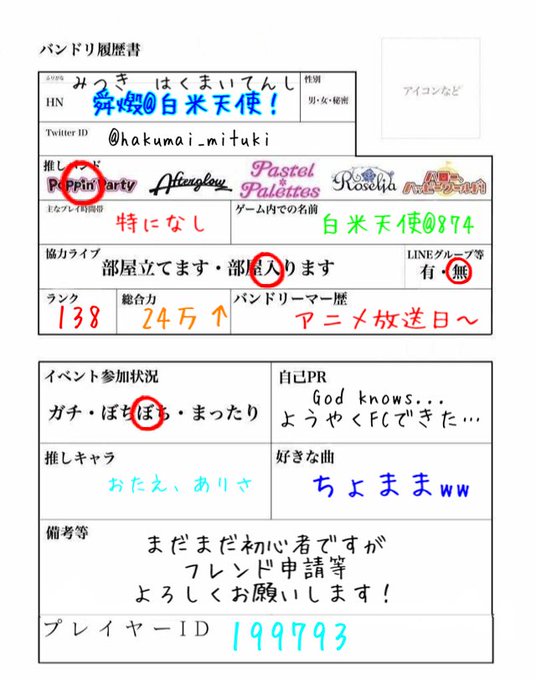 バンドリ履歴書
アイコンなど
ふりがな
みつき はくまいてんし
HN
舜燬@白米天使!
性別
男・女・秘密
Twitter ID
@hakumai_mituki
推しバンド
Poppin'Party
Afterglow
Pastel*Palettes
Roselia
ハロー、ハッピーワールド!
主なプレイ時間帯
特になし
ゲーム内での名前
白米天使@874
協力ライブ
部屋立てます・部屋入ります
LINEグループ等
有・無
ランク
138
総合力
24万↑
バンドリーマー歴
アニメ放送日~
イベント参加状況
ガチ・ぼちぼち・まったり
自己PR
God knows...
ようやくFCできた…
推しキャラ
おたえ、ありさ
好きな曲
ちょままww
備考等
まだまだ初心者ですが
フレンド申請等
よろしくお願いします!
プレイヤーID
199793